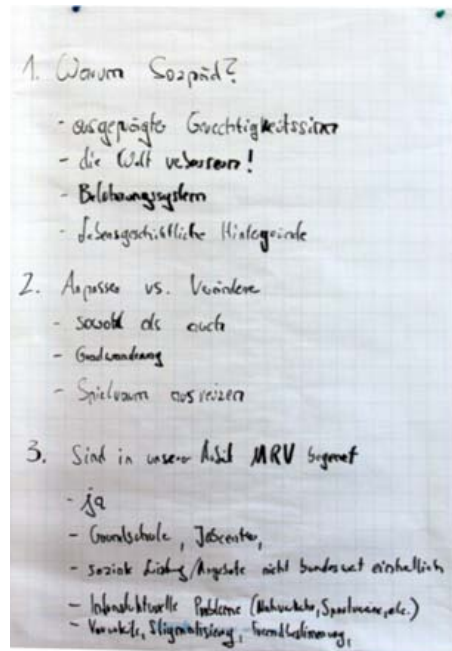 1. Warum Sozpäd?
- ausgeprägter Gerechtigkeitssinn
- die Welt verbessern!
- Belohnungssystem
- Lebensgeschichtliche Hintergründe
2. Anpassen vs. Verändern
- sowohl als auch
- Gradwanderung
- Spielraum ausreizen
3. Sind in unserer Arbeit MRV begegnet
- ja
- Grundschule, Jobcenter,
- soziale /Angebote nicht bundesweit einheitlich
- Infrastrukturelle Probleme (Nahverkehr, Sportvereine, etc.)
- Vorurteile, Stigmatisierung, Fremdbestimmung,